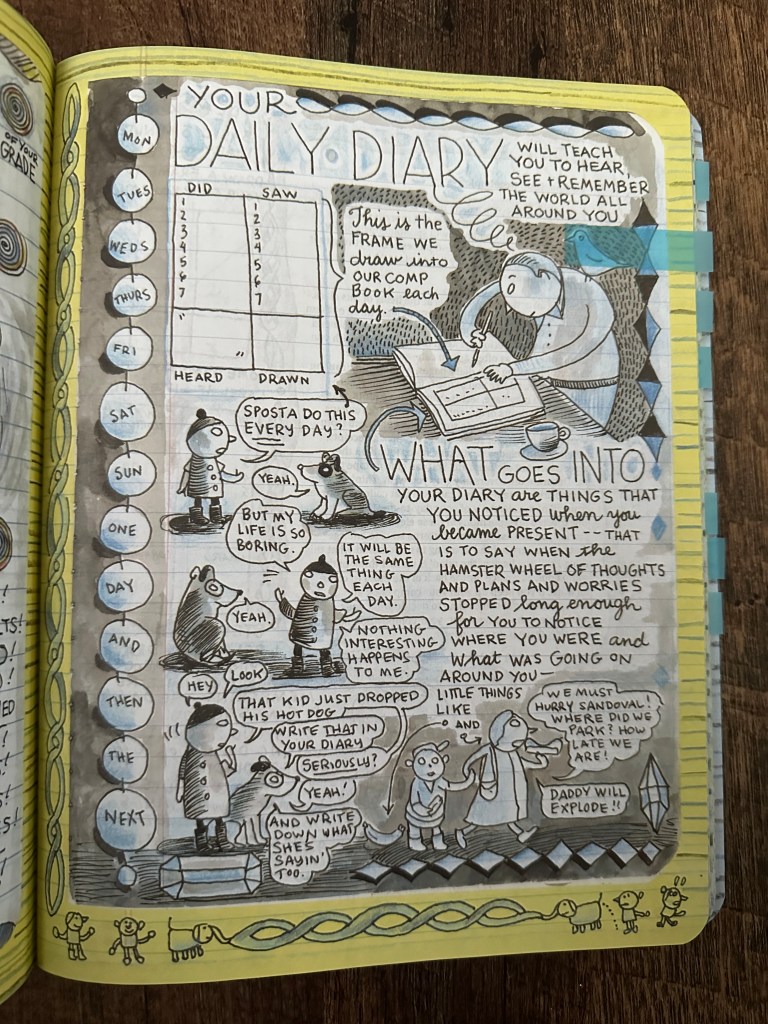 OF YOUR
GRADE
MON
TUES
WEDS
THURS
FRI
SAT
SUN
ONE
DAY
AND
THEN
THE
NEXT
YOUR
DAILY DIARY
WILL TEACH
YOU TO HEAR,
SEE + REMEMBER
THE WORLD ALL
AROUND YOU
DID SAW
1 1
2 2
3 3
4 4
5 5
6 6
7 7
"
"
HEARD DRAWN
This is the
FRAME WE
draw into
OUR COMP
BOOK each
day.
SPOSTA DO THIS
EVERY DAY?
YEAH.
BUT MY
LIFE IS SO
BORING.
IT WILL BE
THE SAME
THING
EACH
DAY.
YEAH.
NOTHING
INTERESTING
HAPPENS
TO ME.
WHAT GOES INTO
YOUR DIARY are THINGS THAT
YOU NOTICED when you
became PRESENT -- THAT
IS TO SAY WHEN the
HAMSTER WHEEL OF THOUGHTS
AND PLANS AND WORRIES
STOPPED long enough
for YOU TO NOTICE
WHERE YOU WERE and
What WAS GOING ON
AROUND YOU—
LITTLE THINGS
LIKE
AND
HEY
LOOK
THAT KID JUST DROPPED
HIS HOT DOG
WRITE THAT IN
YOUR DIARY
SERIOUSLY?
YEAH!
AND WRITE
DOWN WHAT
SHE'S
SAYIN'
TOO.
WE MUST
HURRY SANDOVAL!
WHERE DID WE
PARK? HOW
LATE WE
ARE!
DADDY WILL
EXPLODE!!